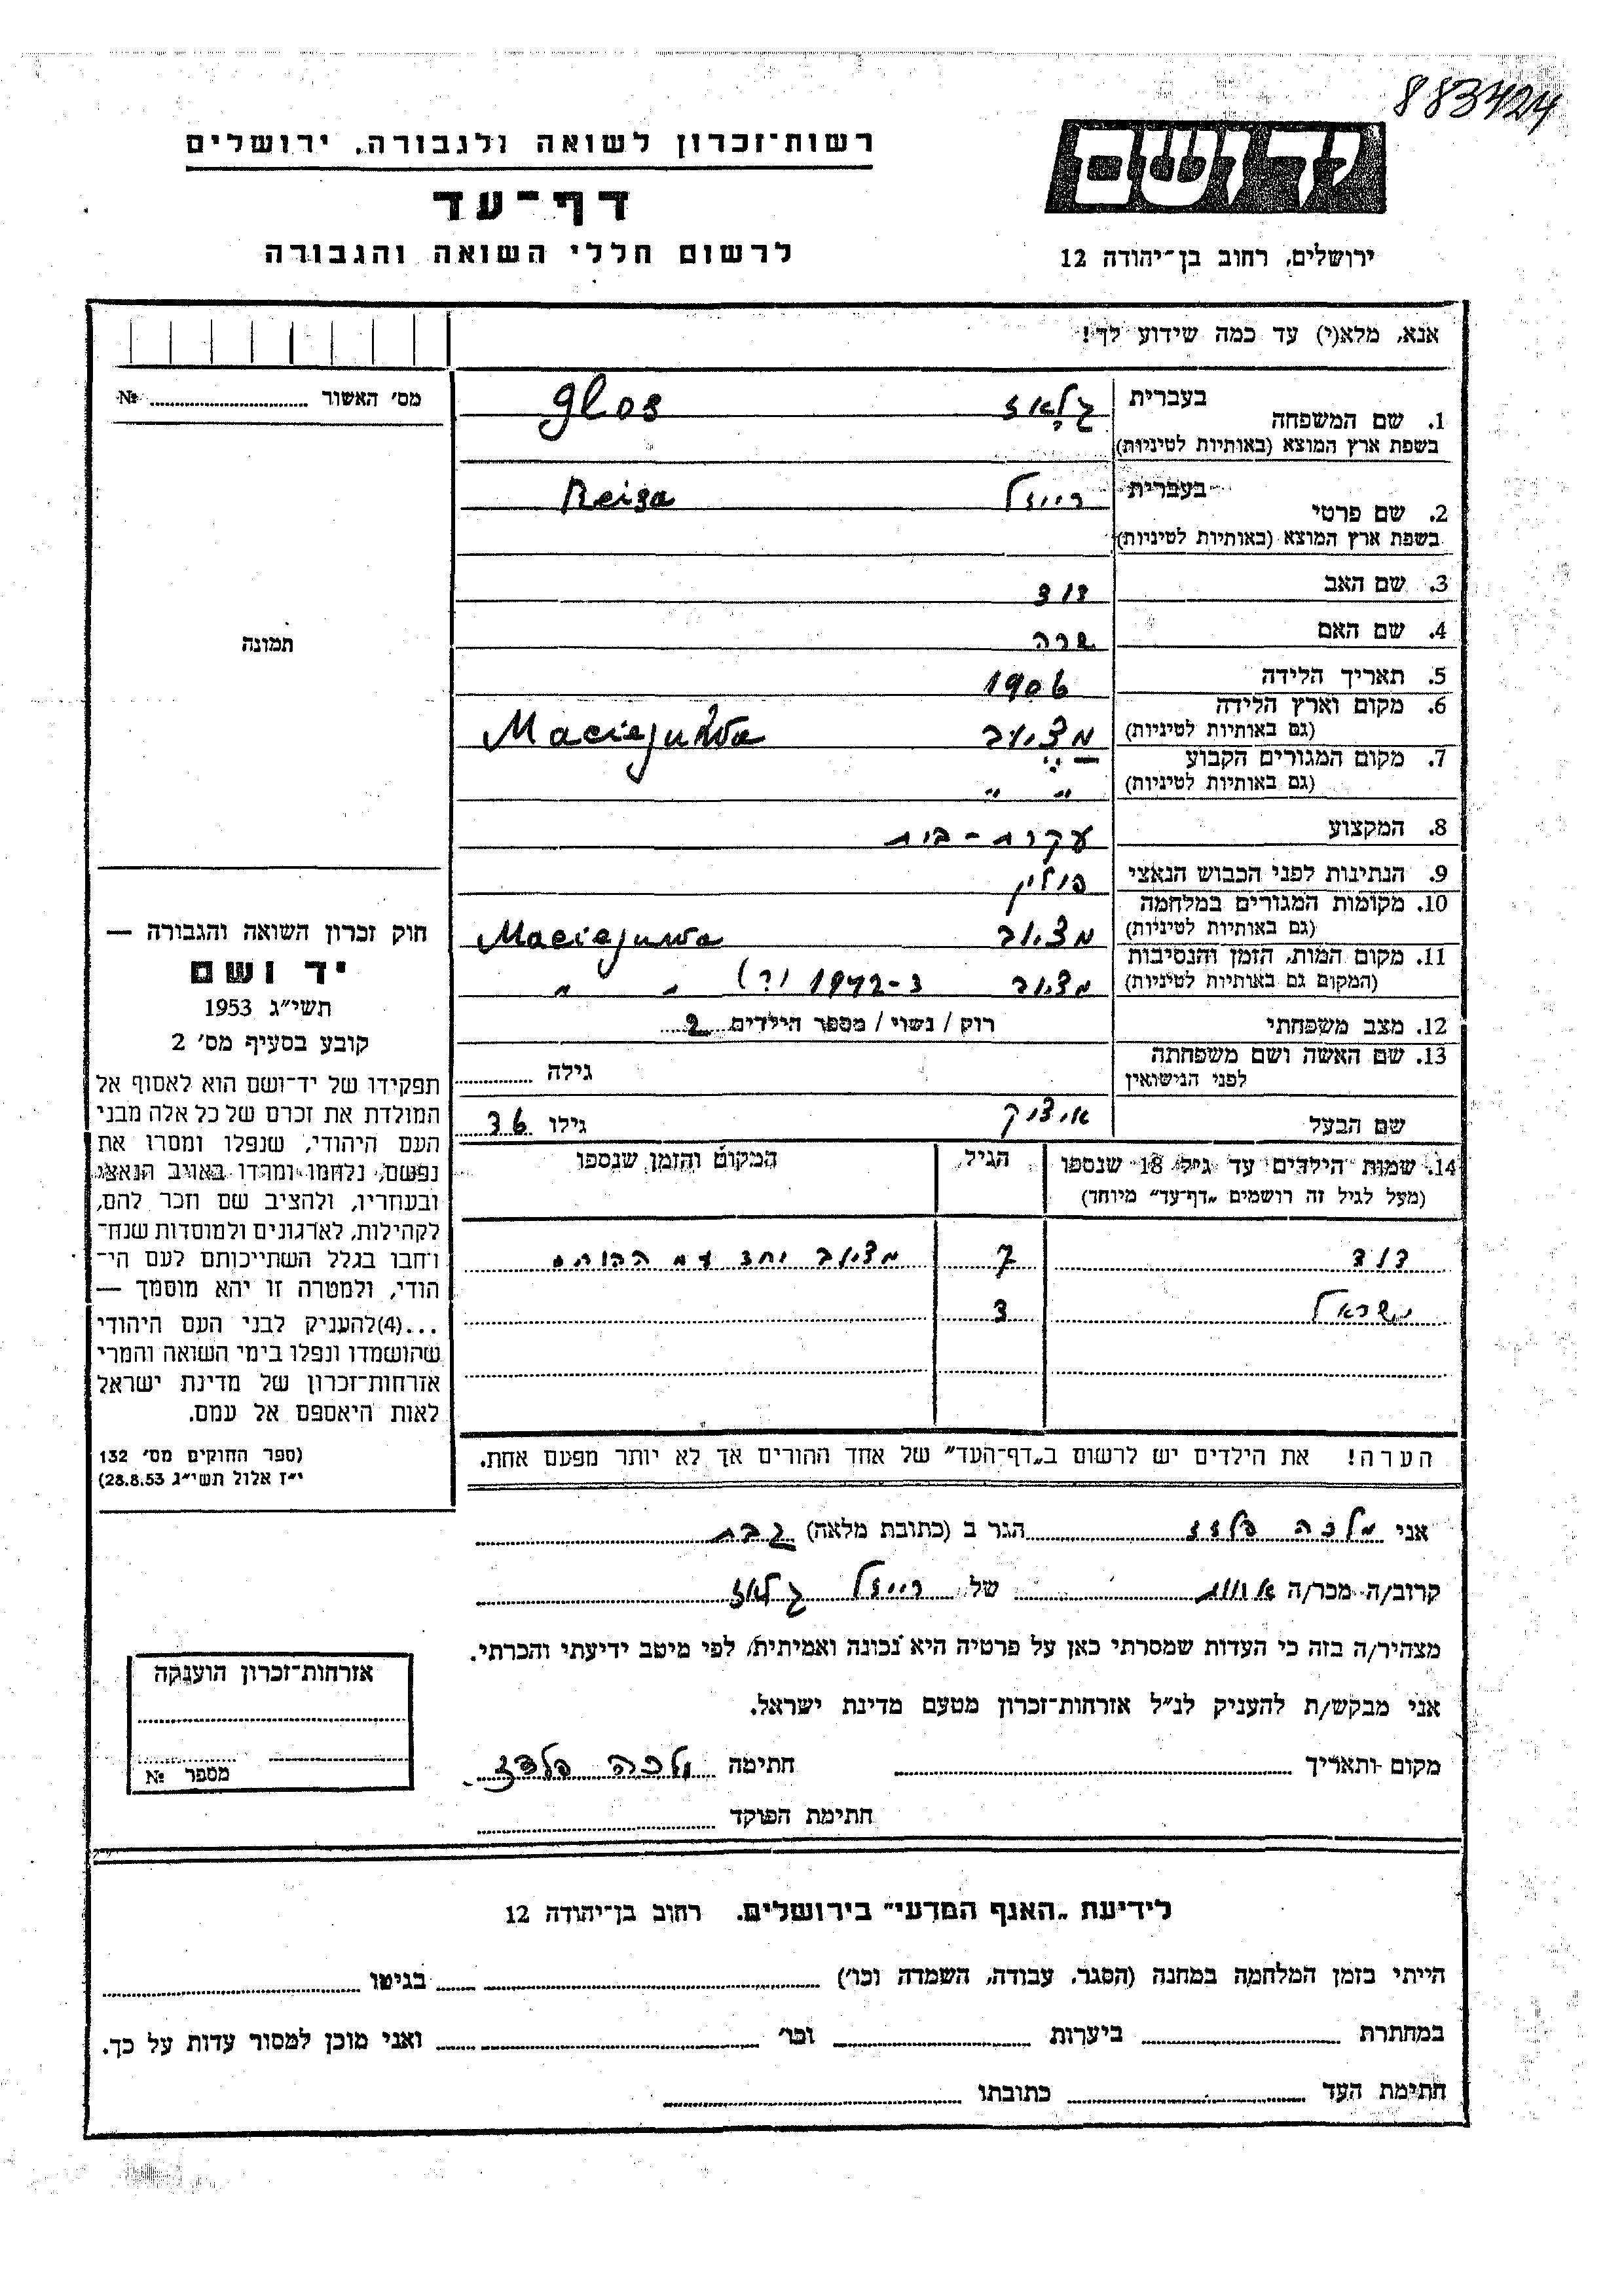 883424
יד ושם
רשות־זכרון לשואה ולגבורה, ירושלים
דף־עד
לרשום חללי השואה והגבורה
ירושלים, רחוב בן־יהודה 12
אנא, מלא(י) עד כמה שידוע לך!
מס׳ האשור № ..........
1. שם המשפחה בעברית גלאז glos
בשפת ארץ המוצא (באותיות לטיניות)
2. שם פרטי בעברית רייזל Reiza
בשפת ארץ המוצא (באותיות לטיניות)
3. שם האב דוד
4. שם האם שרה
תמונה
5. תאריך הלידה 1906
6. מקום וארץ הלידה
(גם באותיות לטיניות) מציוב
7. מקום המגורים הקבוע
(גם באותיות לטיניות) " "
8. המקצוע עקרת-בית
9. הנתינות לפני הכבוש הנאצי פולין
10. מקומות המגורים במלחמה
(גם באותיות לטיניות) מציוב Maciejuwa
11. מקום המות, הזמן והנסיבות
(המקום גם באותיות לטיניות) מציוב ב-1942 (?) " "
12. מצב משפחתי רוק / נשוי / מספר הילדים 2
13. שם האשה ושם משפחתה
לפני הנישואין גילה
שם הבעל איציק גילו 36
14. שמות הילדים עד גיל 18 שנספו הגיל המקום והזמן שנספו
(מעל לגיל זה רושמים „דף־עד״ מיוחד)
דוד 7 מציוב יחד עם ההורים
ישראל 3
הערה! את הילדים יש לרשום ב„דף־העד״ של אחד ההורים אך לא יותר מפעם אחת.
חוק זכרון השואה והגבורה —
יד ושם
תשי״ג 1953
קובע בסעיף מס׳ 2
תפקידו של יד־ושם הוא לאסוף אל
המולדת את זכרם של כל אלה מבני
העם היהודי, שנפלו ומסרו את
נפשם, נלחמו ומרדו באויב הנאצי
ובעוזריו, ולהציב שם וזכר להם,
לקהילות, לארגונים ולמוסדות שנח־
רבו בגלל השתייכותם לעם הי־
הודי, ולמטרה זו יהא מוסמך —
...(4)להעניק לבני העם היהודי
שהושמדו ונפלו בימי השואה והמרי
אזרחות־זכרון של מדינת ישראל
לאות היאספם אל עמם.
(ספר החוקים מס׳ 132
י״ז אלול תשי״ג 28.8.53)
אני מלכה הגר ב (כתובת מלאה) גבת
קרוב/ה מכר/ה אחות של רייזל גלאז
מצהיר/ה בזה כי העדות שמסרתי כאן על פרטיה היא נכונה ואמיתית, לפי מיטב ידיעתי והכרתי.
אני מבקש/ת להעניק לנ״ל אזרחות־זכרון מטעם מדינת ישראל.
מקום ותאריך חתימה מלכה
חתימת הפוקד
אזרחות־זכרון הוענקה
מספר №
לידיעת „האגף המדעי״ בירושלים, רחוב בן־יהודה 12
הייתי בזמן המלחמה במחנה (הסגר, עבודה, השמדה וכו׳) בגיטו
במחתרת ביערות וכו׳ ואני מוכן למסור עדות על כך.
חתימת העד כתובתו